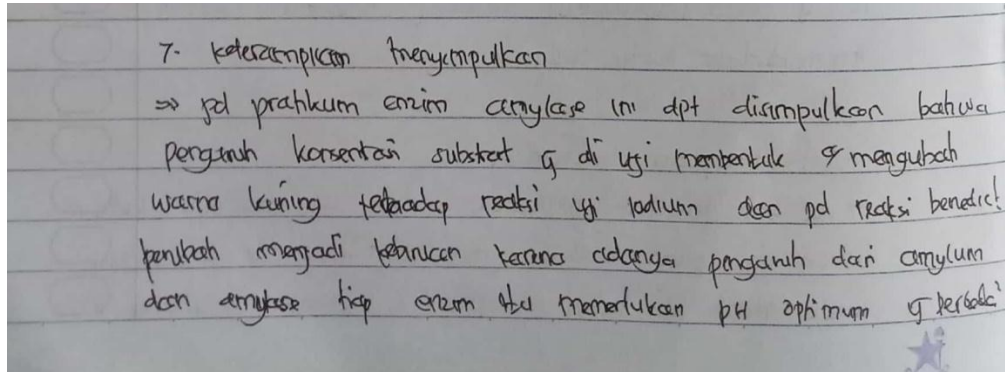 7. keterampilan menyimpulkan
⇒ pd pratikum enzim amylase ini dpt disimpulkan bahwa
pengaruh konsentrasi substrat yg di uji membentuk & mengubah
warna kuning terhadap reaksi uji Iodium dan pd reaksi benedict
berubah menjadi kebiruan karena adanya pengaruh dari amylum
dan amylase tiap enzim itu memerlukan pH optimum yg berbeda²